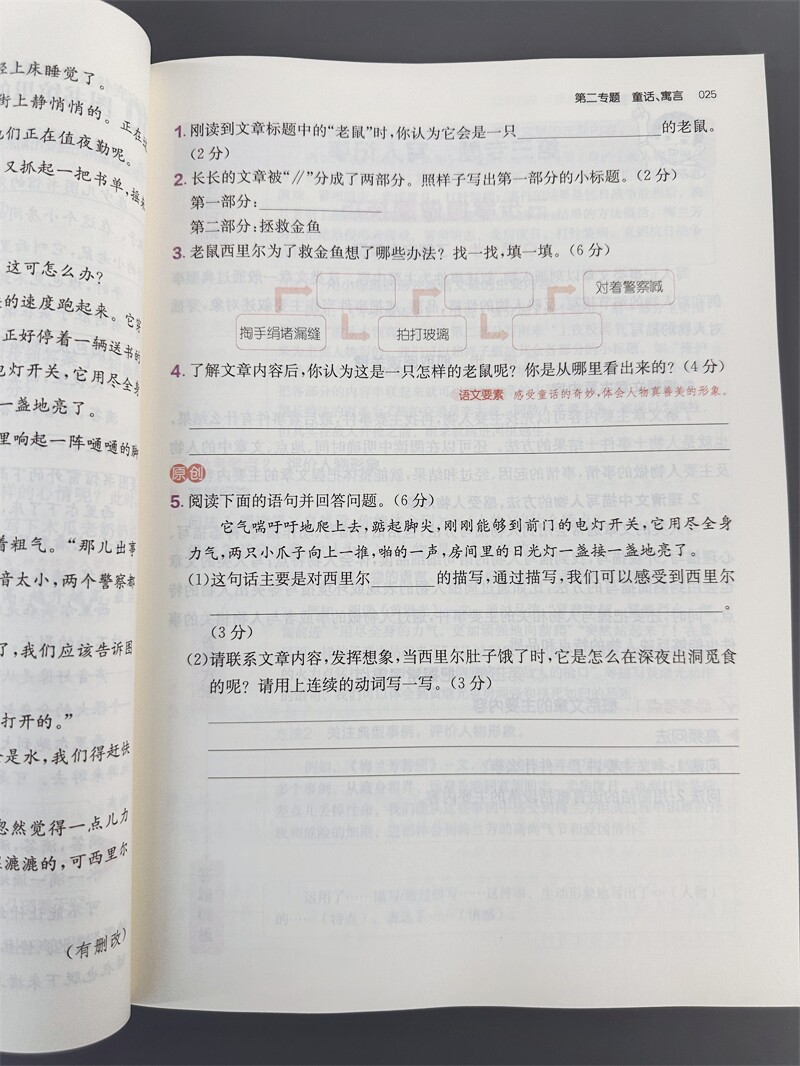 轻上床睡觉了。
街上静悄悄的。正在
他们正在值夜勤呢。
又抓起一把书单，
这可怎么办？
的速度跑起来。它
正好停着一辆送书的
电灯开关，它用尽全身
一盏地亮了。
里响起一阵嗵嗵的脚
着粗气。“那儿出事
音太小，两个警察都
了，我们应该告诉图
打开的。”
是水，我们得赶快
忽然觉得一点儿力
漉漉的，可西里尔
（有删改）
第二专题 童话、寓言 025
1. 刚读到文章标题中的“老鼠”时，你认为它会是一只的老鼠。
（2分）
2. 长长的文章被“∥”分成了两部分。照样子写出第一部分的小标题。（2分）
第一部分：
第二部分：拯救金鱼
3. 老鼠西里尔为了救金鱼想了哪些办法？找一找，填一填。（6分）
对着警察喊
掏手绢堵漏缝 拍打玻璃
4. 了解文章内容后，你认为这是一只怎样的老鼠呢？你是从哪里看出来的？（4分）
语文要素 感受童话的奇妙，体会人物真善美的形象。
原创
5. 阅读下面的语句并回答问题。（6分）
它气喘吁吁地爬上去，踮起脚尖，刚刚能够到前门的电灯开关，它用尽全身
力气，两只小爪子向上一推，啪的一声，房间里的日光灯一盏接一盏地亮了。
（1）这句话主要是对西里尔的描写，通过描写，我们可以感受到西里尔
。
（3分）
（2）请联系文章内容，发挥想象，当西里尔肚子饿了时，它是怎么在深夜出洞觅食
的呢？请用上连续的动词写一写。（3分）